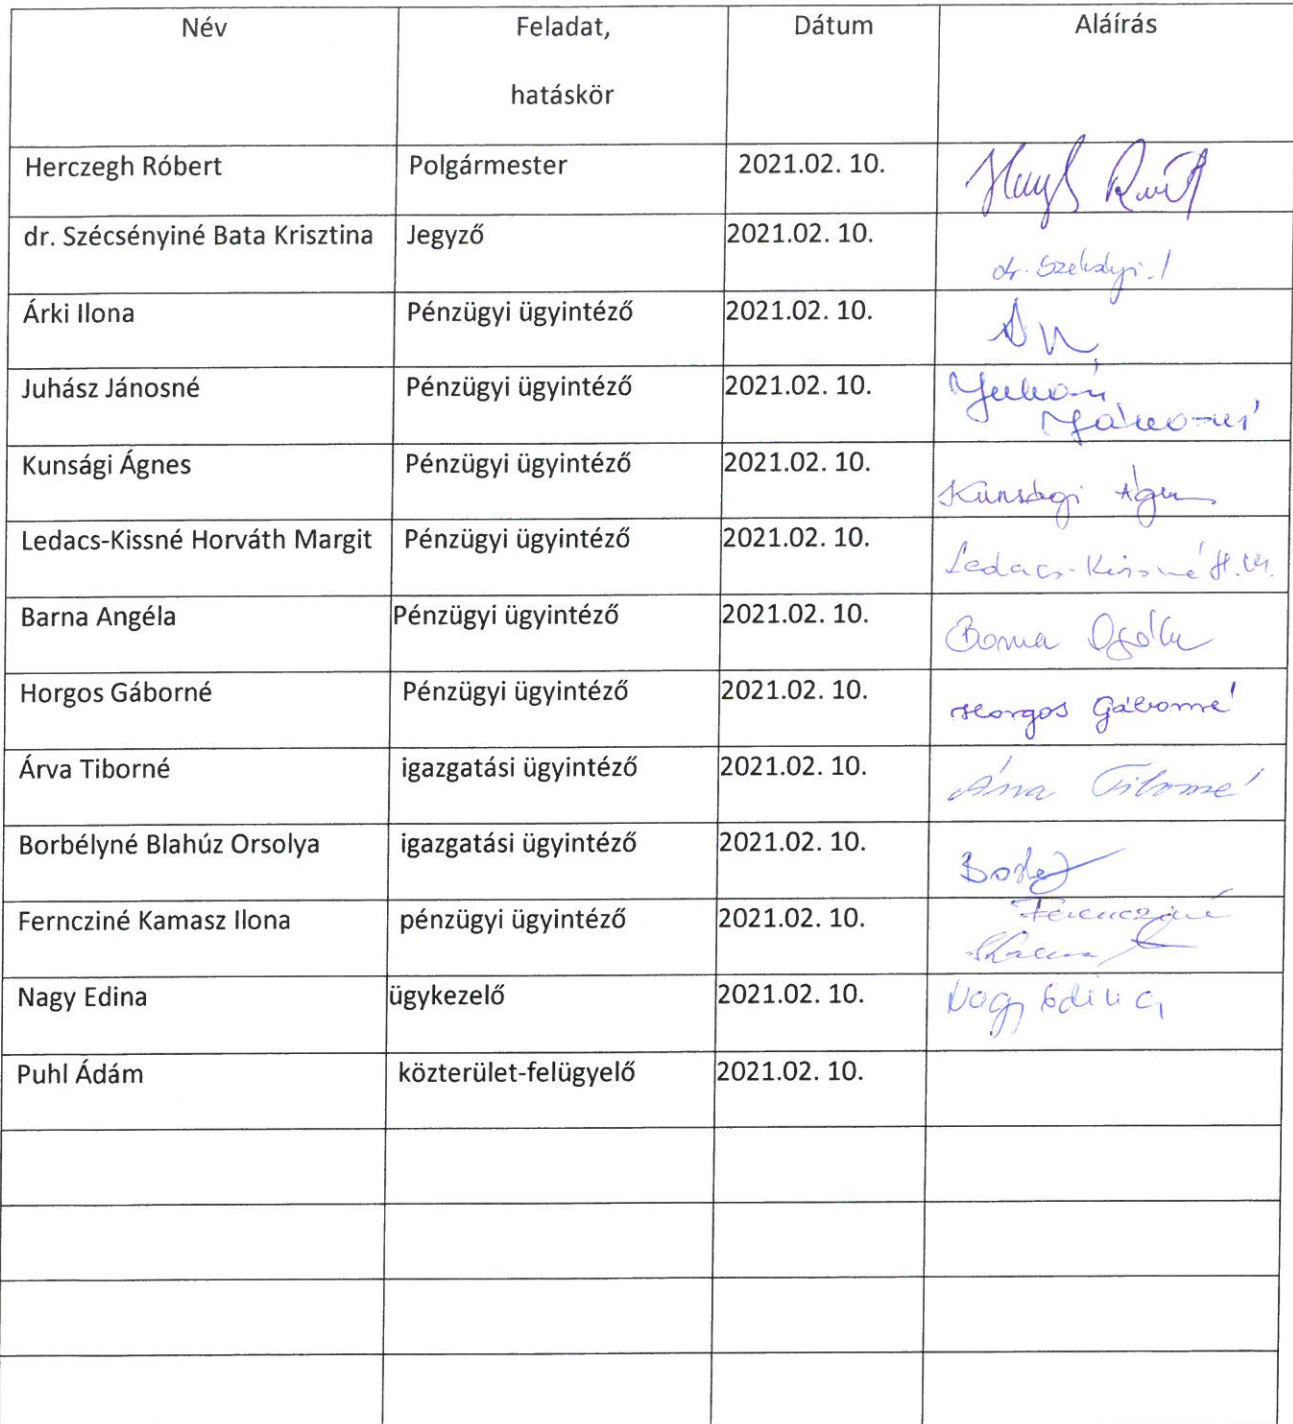 Név Feladat, Dátum Aláírás
hatáskör
Herczegh Róbert Polgármester 2021.02. 10.
dr. Szécsényiné Bata Krisztina Jegyző 2021.02. 10.
Árki Ilona Pénzügyi ügyintéző 2021.02. 10.
Juhász Jánosné Pénzügyi ügyintéző 2021.02. 10. Juhász
Jánosné
Kunsági Ágnes Pénzügyi ügyintéző 2021.02. 10. Kunsági Ágnes
Ledacs-Kissné Horváth Margit Pénzügyi ügyintéző 2021.02. 10. Ledacs-Kissné H. M.
Barna Angéla Pénzügyi ügyintéző 2021.02. 10. Barna Angéla
Horgos Gáborné Pénzügyi ügyintéző 2021.02. 10. Horgos Gáborné
Árva Tiborné igazgatási ügyintéző 2021.02. 10. Árva Tiborné
Borbélyné Blahúz Orsolya igazgatási ügyintéző 2021.02. 10.
Ferncziné Kamasz Ilona pénzügyi ügyintéző 2021.02. 10. Ferencziné
Nagy Edina ügykezelő 2021.02. 10. Nagy Edina
Puhl Ádám közterület-felügyelő 2021.02. 10.